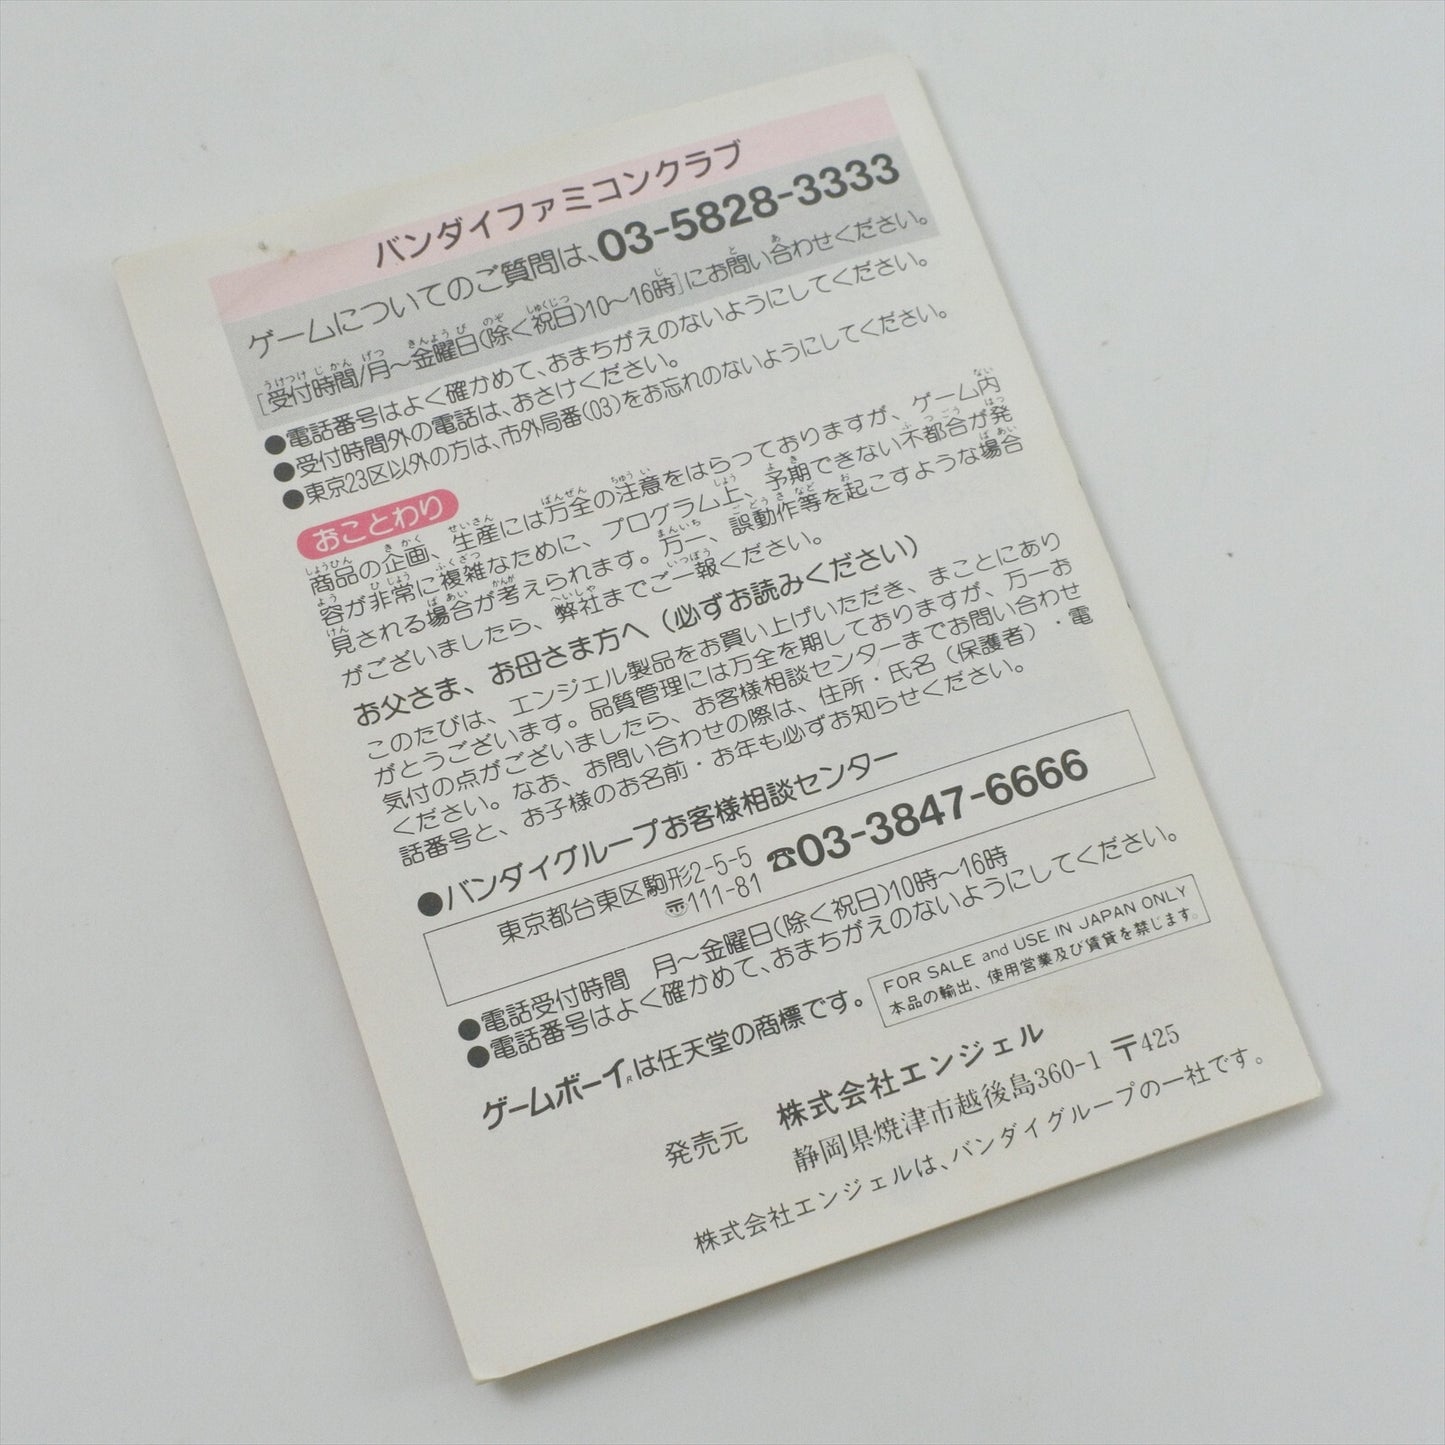 バンダイファミコンクラブ
ゲームについてのご質問は、03-5828-3333
[受付時間/月〜金曜日(除く祝日)10〜16時]にお問い合わせください。
●電話番号はよく確かめて、おまちがえのないようにしてください。
●受付時間外の電話は、おさけください。
●東京23区以外の方は、市外局番(03)をお忘れのないようにしてください。
おことわり
商品の企画、生産には万全の注意をはらっておりますが、ゲーム内
容が非常に複雑なために、プログラム上、予期できない不都合が発
見される場合が考えられます。万一、誤動作等を起こすような場合
がございましたら、弊社までご一報ください。
お父さま、お母さま方へ(必ずお読みください)
このたびは、エンジェル製品をお買い上げいただき、まことにあり
がとうございます。品質管理には万全を期しておりますが、万一お
気付の点がございましたら、お客様相談センターまでお問い合わせ
ください。なお、お問い合わせの際は、住所・氏名(保護者)・電
話番号と、お子様のお名前・お年も必ずお知らせください。
●バンダイグループお客様相談センター
東京都台東区駒形2-5-5
〒111-81
☎03-3847-6666
●電話受付時間 月〜金曜日(除く祝日)10時〜16時
●電話番号はよく確かめて、おまちがえのないようにしてください。
ゲームボーイRは任天堂の商標です。
FOR SALE and USE IN JAPAN ONLY
本品の輸出、使用営業及び賃貸を禁じます。
発売元 株式会社エンジェル
静岡県焼津市越後島360-1 〒425
株式会社エンジェルは、バンダイグループの一社です。